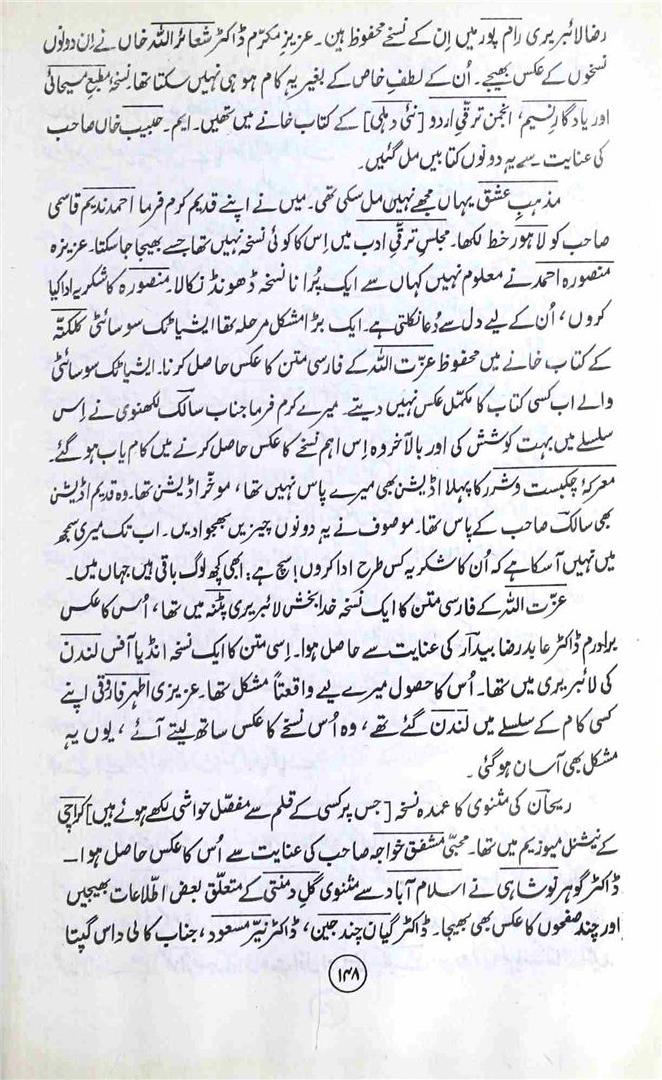 رضا لائبریری رام پور میں اِن کے نسخے محفوظ ہیں۔ عزیزِ مکرّم ڈاکٹر شعائر اللہ خاں نے اِن دونوں
نسخوں کے عکس بھیجے۔ اُن کے لطفِ خاص کے بغیر یہ کام ہو ہی نہیں سکتا تھا۔ نسخۂ مطبعِ مسیحائی
اور یادگارِ نسیم، انجمن ترقیِ اردو [نئی دہلی] کے کتاب خانے میں تھیں۔ ایم۔ حبیب خاں صاحب
کی عنایت سے یہ دونوں کتابیں مل گئیں۔
مذہبِ عشق یہاں مجھے نہیں مل سکی تھی۔ میں نے اپنے قدیم کرم فرما احمد ندیم قاسمی
صاحب کو لاہور خط لکھا۔ مجلسِ ترقیِ ادب میں اِس کا کوئی نسخہ نہیں تھا جسے بھیجا جا سکتا۔ عزیزہ
منصورہ احمد نے معلوم نہیں کہاں سے ایک پُرانا نسخہ ڈھونڈ نکالا۔ منصورہ کا شکریہ ادا کیا
کروں، اُن کے لیے دل سے دُعا نکلتی ہے۔ ایک بڑا مشکل مرحلہ تھا ایشیاٹک سوسائٹی کلکتّہ
کے کتاب خانے میں محفوظ عزّت اللہ کے فارسی متن کا عکس حاصل کرنا۔ ایشیاٹک سوسائٹی
والے اب کسی کتاب کا مکمّل عکس نہیں دیتے۔ میرے کرم فرما جناب سالکؔ لکھنوی نے اِس
سلسلے میں بہت کوشش کی اور بالآخر وہ اِس اہم نسخے کا عکس حاصل کرنے میں کام یاب ہو گئے۔
معرکۂ چکبست و شرر کا پہلا اڈیشن بھی میرے پاس نہیں تھا، موخّر اڈیشن تھا۔ وہ قدیم اڈیشن
بھی سالکؔ صاحب کے پاس تھا۔ موصوف نے یہ دونوں چیزیں بھجوا دیں۔ اب تک میری سمجھ
میں نہیں آ سکا ہے کہ اُن کا شکریہ کس طرح ادا کروں! سچ ہے: ابھی کچھ لوگ باقی ہیں جہاں میں۔
عزّت اللہ کے فارسی متن کا ایک نسخہ خدا بخش لائبریری پٹنہ میں تھا، اُس کا عکس
برادرم ڈاکٹر عابد رضا بیدار کی عنایت سے حاصل ہوا۔ اِسی متن کا ایک نسخہ انڈیا آفس لندن
کی لائبریری میں تھا۔ اُس کا حصول میرے لیے واقعتاً مشکل تھا۔ عزیزی اطہر فاروقی اپنے
کسی کام کے سلسلے میں لندن گئے تھے، وہ اُس نسخے کا عکس ساتھ لیتے آئے، یوں یہ
مشکل بھی آسان ہو گئی۔
ریحانؔ کی مثنوی کا عمدہ نسخہ [جس پر کسی کے قلم سے مفصّل حواشی لکھے ہوئے ہیں] کراچی
کے نیشنل میوزیم میں تھا۔ محبّی مشفق خواجہ صاحب کی عنایت سے اُس کا عکس حاصل ہوا —
ڈاکٹر گوہر نوشاہی نے اسلام آباد سے مثنوی گل دمنتی کے متعلّق بعض اطّلاعات بھیجیں
اور چند صفحوں کا عکس بھی بھیجا۔ ڈاکٹر گیان چند جین، ڈاکٹر نیّر مسعود، جناب کالی داس گپتا
۱۴۸